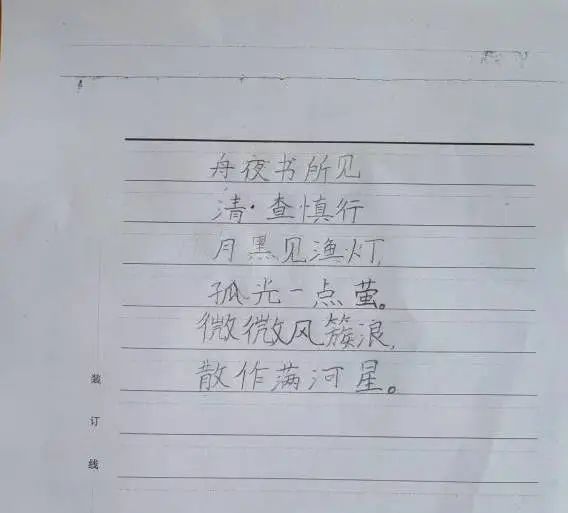 舟夜书所见
清·查慎行
月黑见渔灯,
孤光一点萤。
微微风簇浪,
散作满河星。
装
订
线